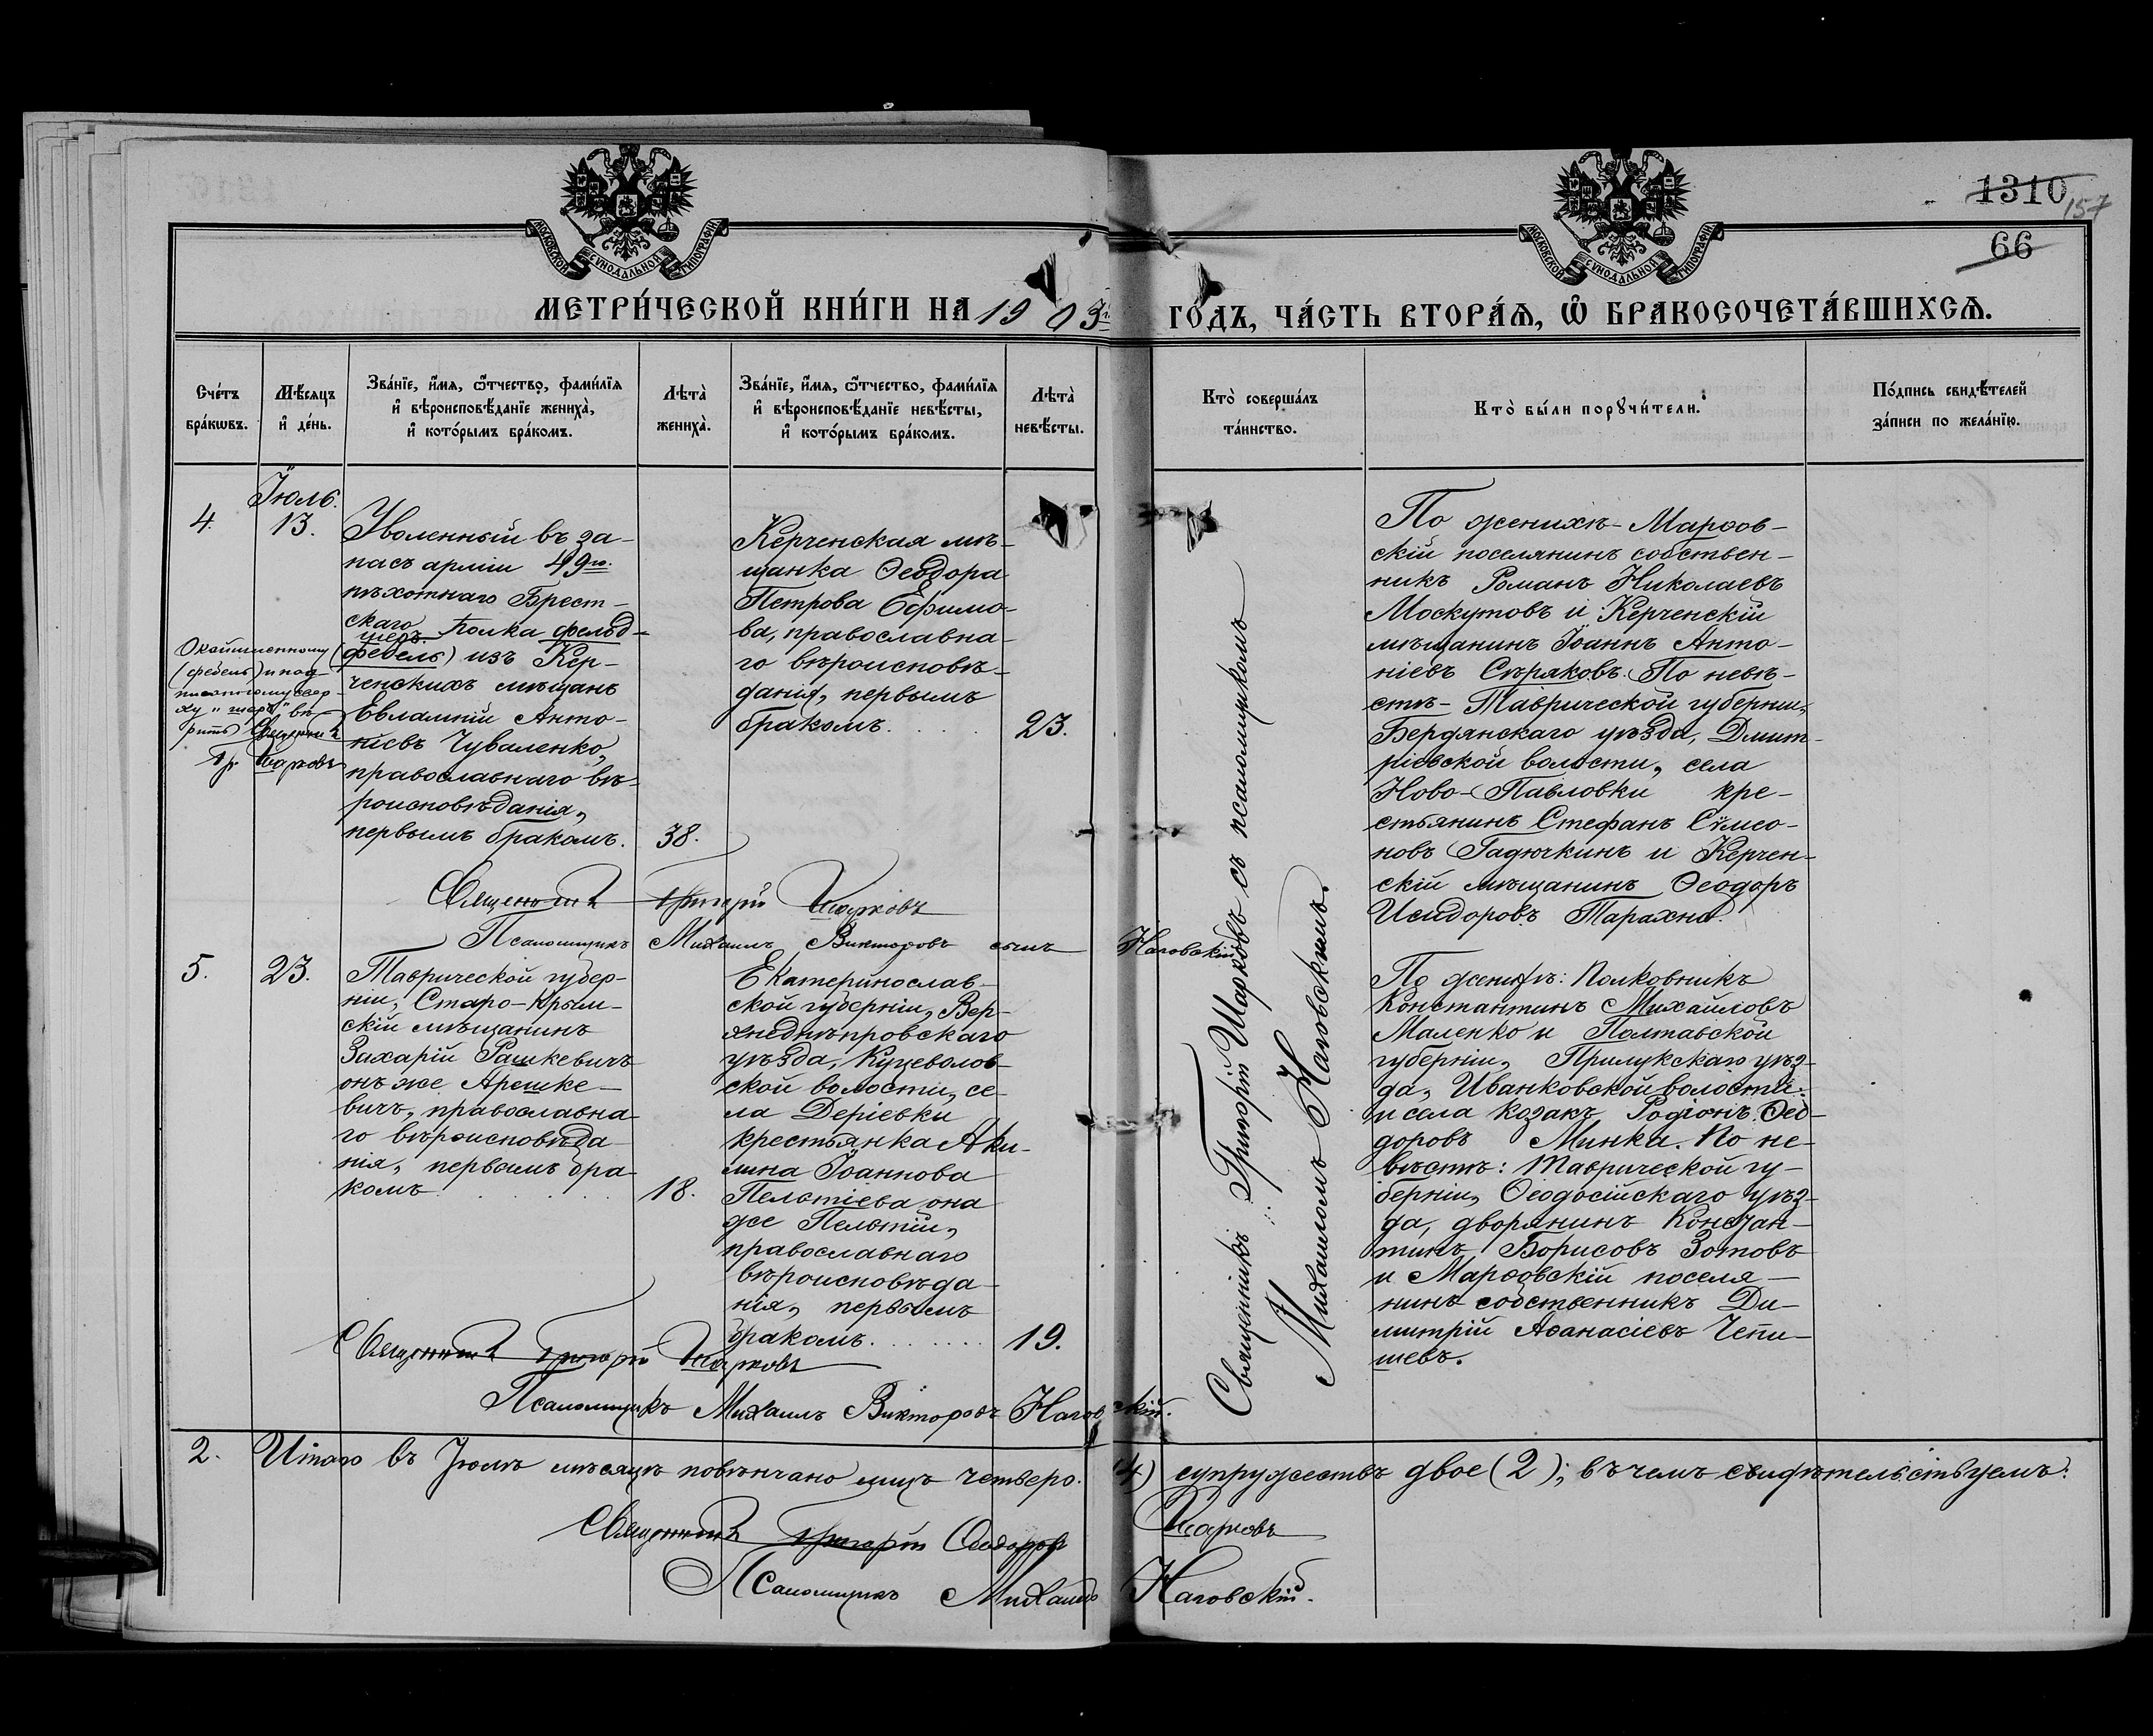 1310
157
66
МОСКОВСКОЙ СѴНОДАЛЬНОЙ ТИПОГРАФІИ
МОСКОВСКОЙ СѴНОДАЛЬНОЙ ТИПОГРАФІИ
МЕТРИ́ЧЕСКОЙ КНИ́ГИ НА 1903 й ГОДЪ, ЧА́СТЬ ВТОРА́Ѧ, Ѽ БРАКОСОЧЕТА́ВШИХСѦ.
Сче́тъ
бра́кωвъ.
Мѣ́сяцъ
и҆ де́нь.
Зва́нїе, и҆́мя, ѻ҆́тчество, фами́лїя
и҆ вѣроисповѣ́данїе жениха̀,
и҆ кото́рымъ бра́комъ.
Лѣта̀
жениха̀.
Зва́нїе, и҆́мя, ѻ҆́тчество, фами́лїя
и҆ вѣроисповѣ́данїе невѣ́сты,
и҆ кото́рымъ бра́комъ.
Лѣта̀
невѣ́сты.
Кто̀ соверша́лъ
та́инство.
Кто̀ бы́ли порꙋчи́тели.
По́дпись свидѣ́телей
за́писи по жела́нїю.
Іюль.
4.
13.
Уволенный въ за-
пасъ арміи 49го
пѣхотнаго Брест-
скаго полка фельд-
шеръ
(фебель) изъ Кер-
ченскихъ мѣщанъ
Евлампій Анто-
ніевъ Чуваленко,
православнаго вѣ-
роисповѣданія,
первымъ бракомъ.
38.
(фебель) и над-
"шеръ" вѣ-
Священникъ
Гр. Шарковъ
Керченская мѣ-
щанка Ѳеодора
Петрова Ефимо-
ва, православна-
го вѣроисповѣ-
данія, первымъ
бракомъ.
23.
Священникъ Григорій Шарковъ съ псаломщикомъ
Михаиломъ Наговскимъ.
По женихѣ - Марѳов-
скій поселянинъ собствен-
никъ Романъ Николаевъ
Москутовъ и Керченскій
мѣщанинъ Іоаннъ Анто-
ніевъ Сѣряковъ. По невѣ-
стѣ - Таврической губерніи,
Бердянскаго уѣзда, Дмит-
ріевской волости, села
Ново-Павловки кре-
стьянинъ Стефанъ Сѵмео-
новъ Гадючкинъ и Керчен-
скій мѣщанинъ Ѳеодоръ
Исидоровъ Тарахно.
Священникъ Григорій Шарковъ
Псаломщикъ Михаилъ Викторовъ сынъ Наговскій
5.
23.
Таврической губер-
ніи, Старо-Крым-
скій мѣщанинъ
Захарій Рашкевичъ
онъ же Арешке-
вичъ, православна-
го вѣроисповѣда-
нія, первымъ бра-
комъ
18.
Екатеринослав-
ской губерніи, Вер-
хнеднѣпровскаго
уѣзда, Куцеволов-
ской волости, се-
ла Деріевки
крестьянка Аки-
лина Іоаннова
Пельтіева она
же Пельтіи,
православнаго
вѣроисповѣда-
нія, первымъ
бракомъ.
19.
По женихѣ: Полковникъ
Константинъ Михайловъ
Маленко и Полтавской
губерніи, Прилукскаго уѣз-
да, Иванковской волости
и села козакъ Родіонъ Ѳео-
доровъ Минка. По не-
вѣстѣ: Таврической гу-
берніи, Ѳеодосійскаго уѣз-
да, дворянинъ Констан-
тинъ Борисовъ Зотовъ
и Марѳовскій поселя-
нинъ собственникъ Ди-
митрій Аѳанасіевъ Чепи-
шевъ.
Священникъ Григорій Шарковъ
Псаломщикъ Михаилъ Викторовъ Наговскій.
2. Итого въ Іюлѣ мѣсяцѣ повѣнчано лицъ четверо (4) супружествъ двое (2); въ чемъ свидѣтельствуемъ:
Священникъ Григорій Ѳеодоровъ Шарковъ
Псаломщикъ Михаилъ Наговскій.